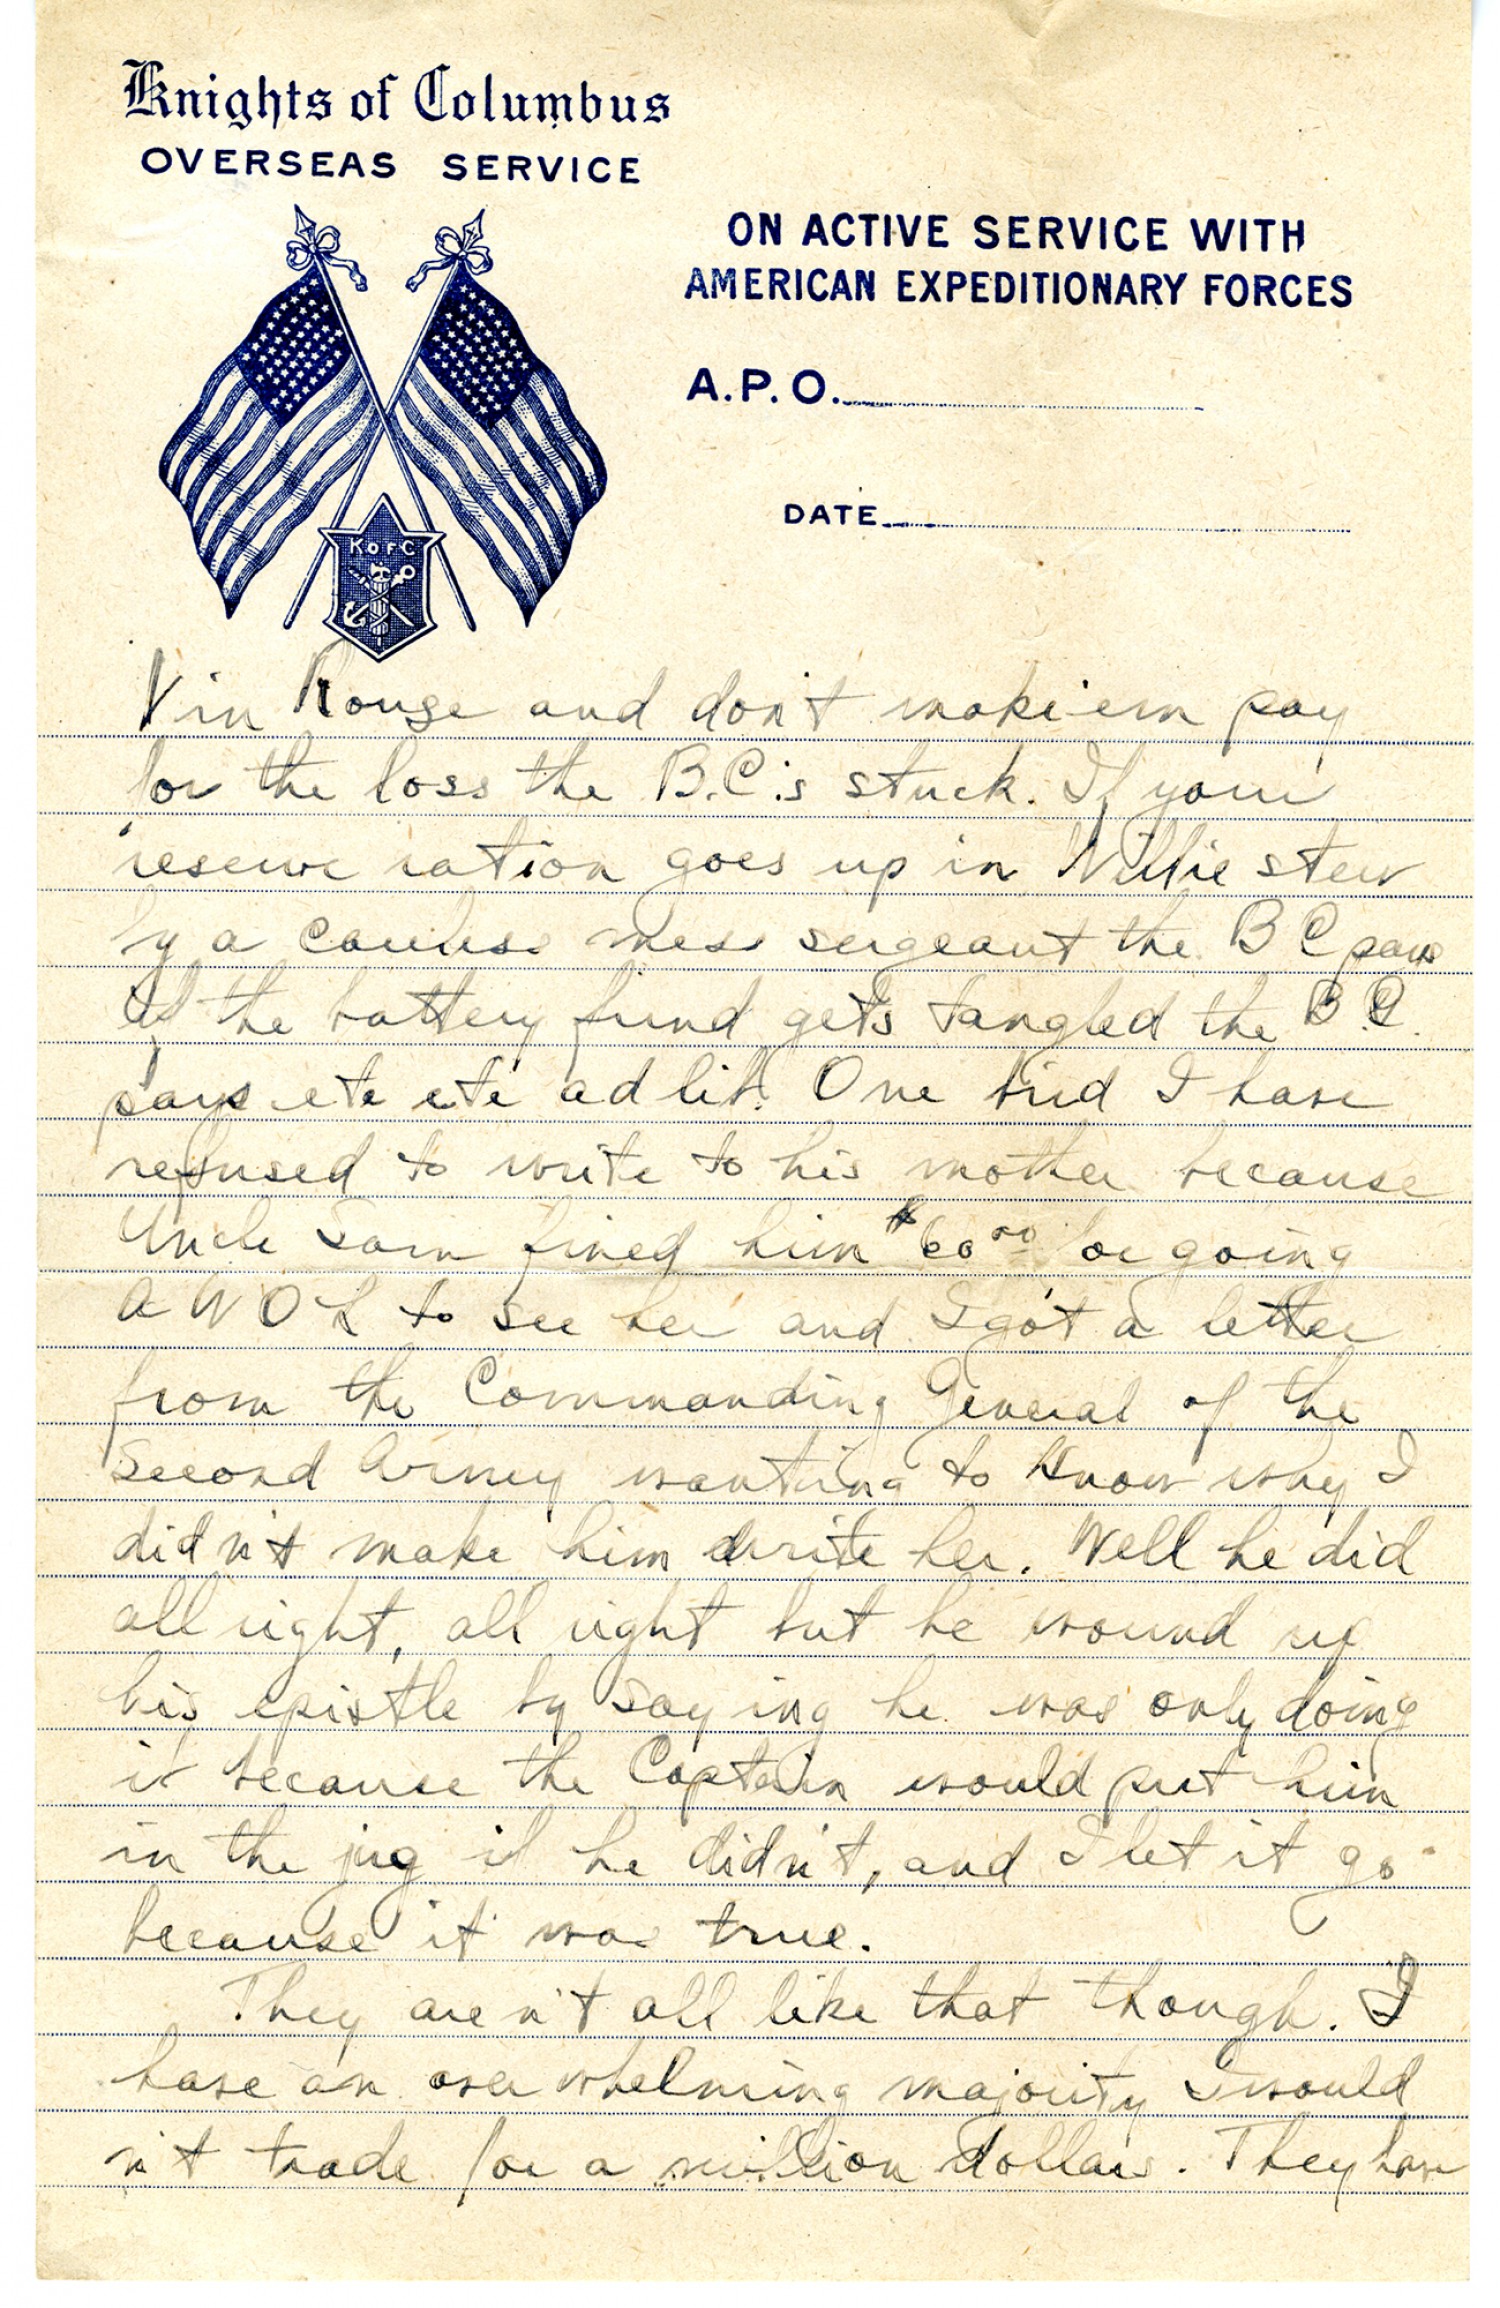 Knights of Columbus
OVERSEAS SERVICE
ON ACTIVE SERVICE WITH
AMERICAN EXPEDITIONARY FORCES
A.P.O.
DATE
K OF C
Vin Rouge and don't make 'em pay
for the loss the B.C.'s stuck. If your
reserve ration goes up in Willie stew
by a careless mess sergeant the B C pays
If the battery fund gets tangled the B.C.
pays etc etc ad lib. One bird I have
refused to write to his mother because
Uncle Sam fined him $60.00 for going
A W O L to see her and I got a letter
from the Commanding General of the
Second Army wanting to know why I
didn't make him write her. Well he did
all right, all right but he wound up
his epistle by saying he was only doing
it because the Captain would put him
in the jug if he didn't, and I let it go
because it was true.
They aren't all like that though. I
have an overwhelming majority I would
n't trade for a million dollars. They have